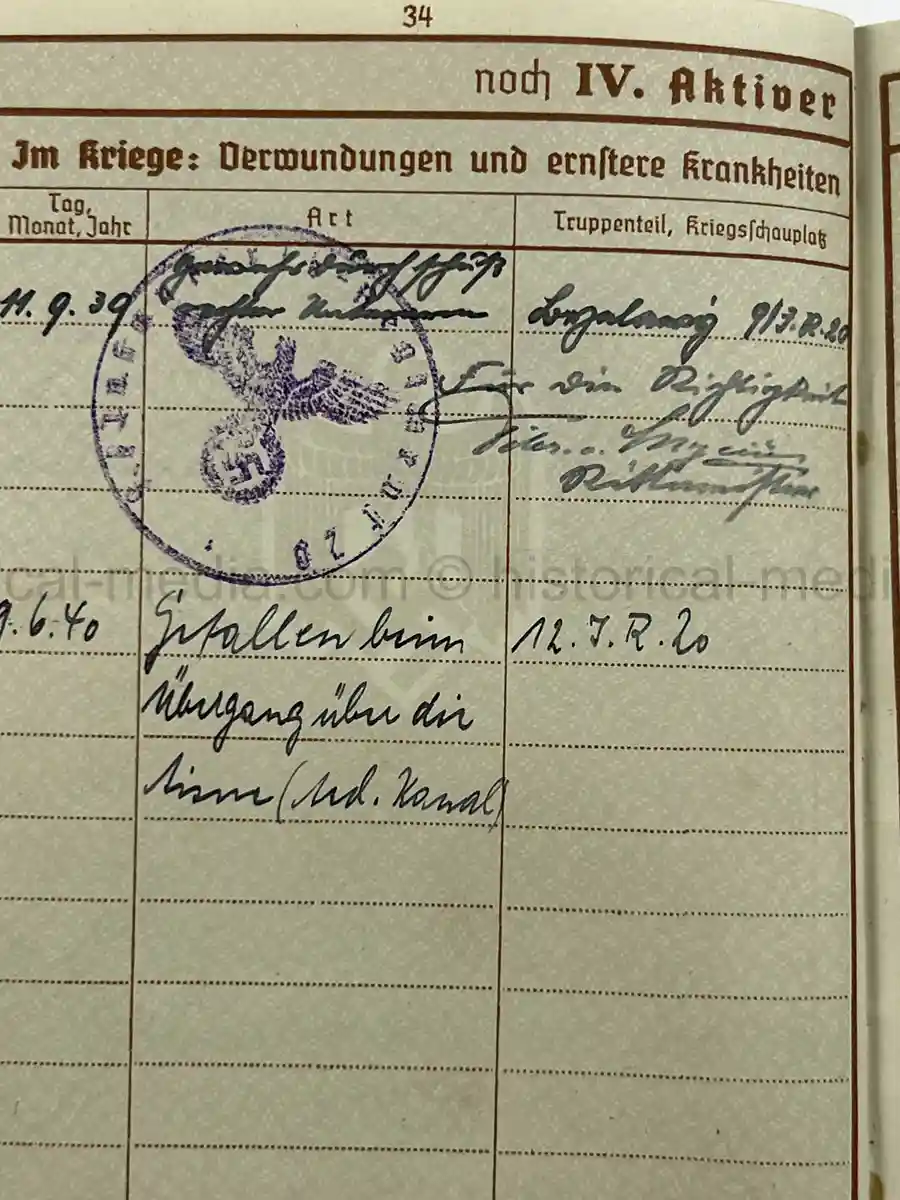 34
noch IV. Aktiver
Im Kriege: Verwundungen und ernstere Krankheiten
Tag,
Monat, Jahr
Art
Truppenteil, Kriegsschauplatz
Gewehrdurchschuß
11. 9. 39 rechter Unterarm 9/J.R.20
Für die Richtigkeit
Rittmeister
20
cal-media.com © historical-medi
9.6.40 Gefallen beim 12. J. R. 20
Übergang über die
Aisne (Kanal)